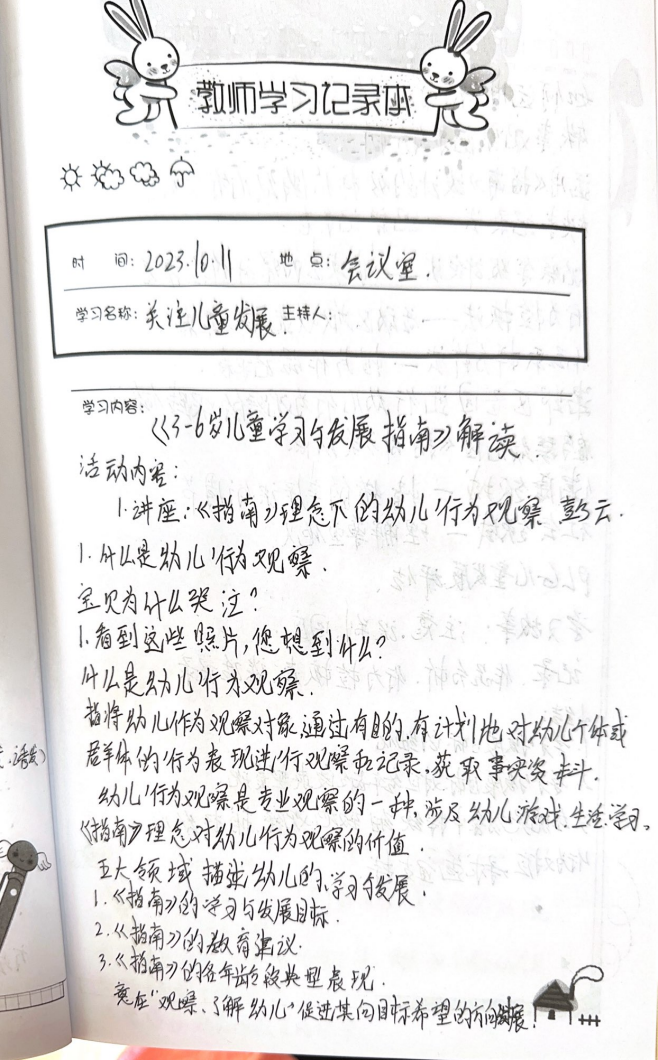 教师学习记录本
时 间: 2023.10.11 地 点: 会议室.
学习名称: 关注儿童发展. 主持人:
学习内容:
《3-6岁儿童学习与发展指南》解读
活动内容:
1.讲座:《指南》理念下的幼儿行为观察 彭云.
1.什么是幼儿行为观察.
宝贝为什么哭泣?
1.看到这些照片,您想到什么?
什么是幼儿行为观察.
指将幼儿作为观察对象,通过有目的,有计划地对幼儿个体或
群体的行为表现进行观察和记录,获取事实资料.
幼儿行为观察是专业观察的一种,涉及幼儿游戏.生活.学习.
《指南》理念对幼儿行为观察的价值.
五大领域描述幼儿的学习与发展.
1.《指南》的学习与发展目标.
2.《指南》的教育建议.
3.《指南》的各年龄段典型表现.
在"观察、了解幼儿"促进其向目标希望的方向发展!